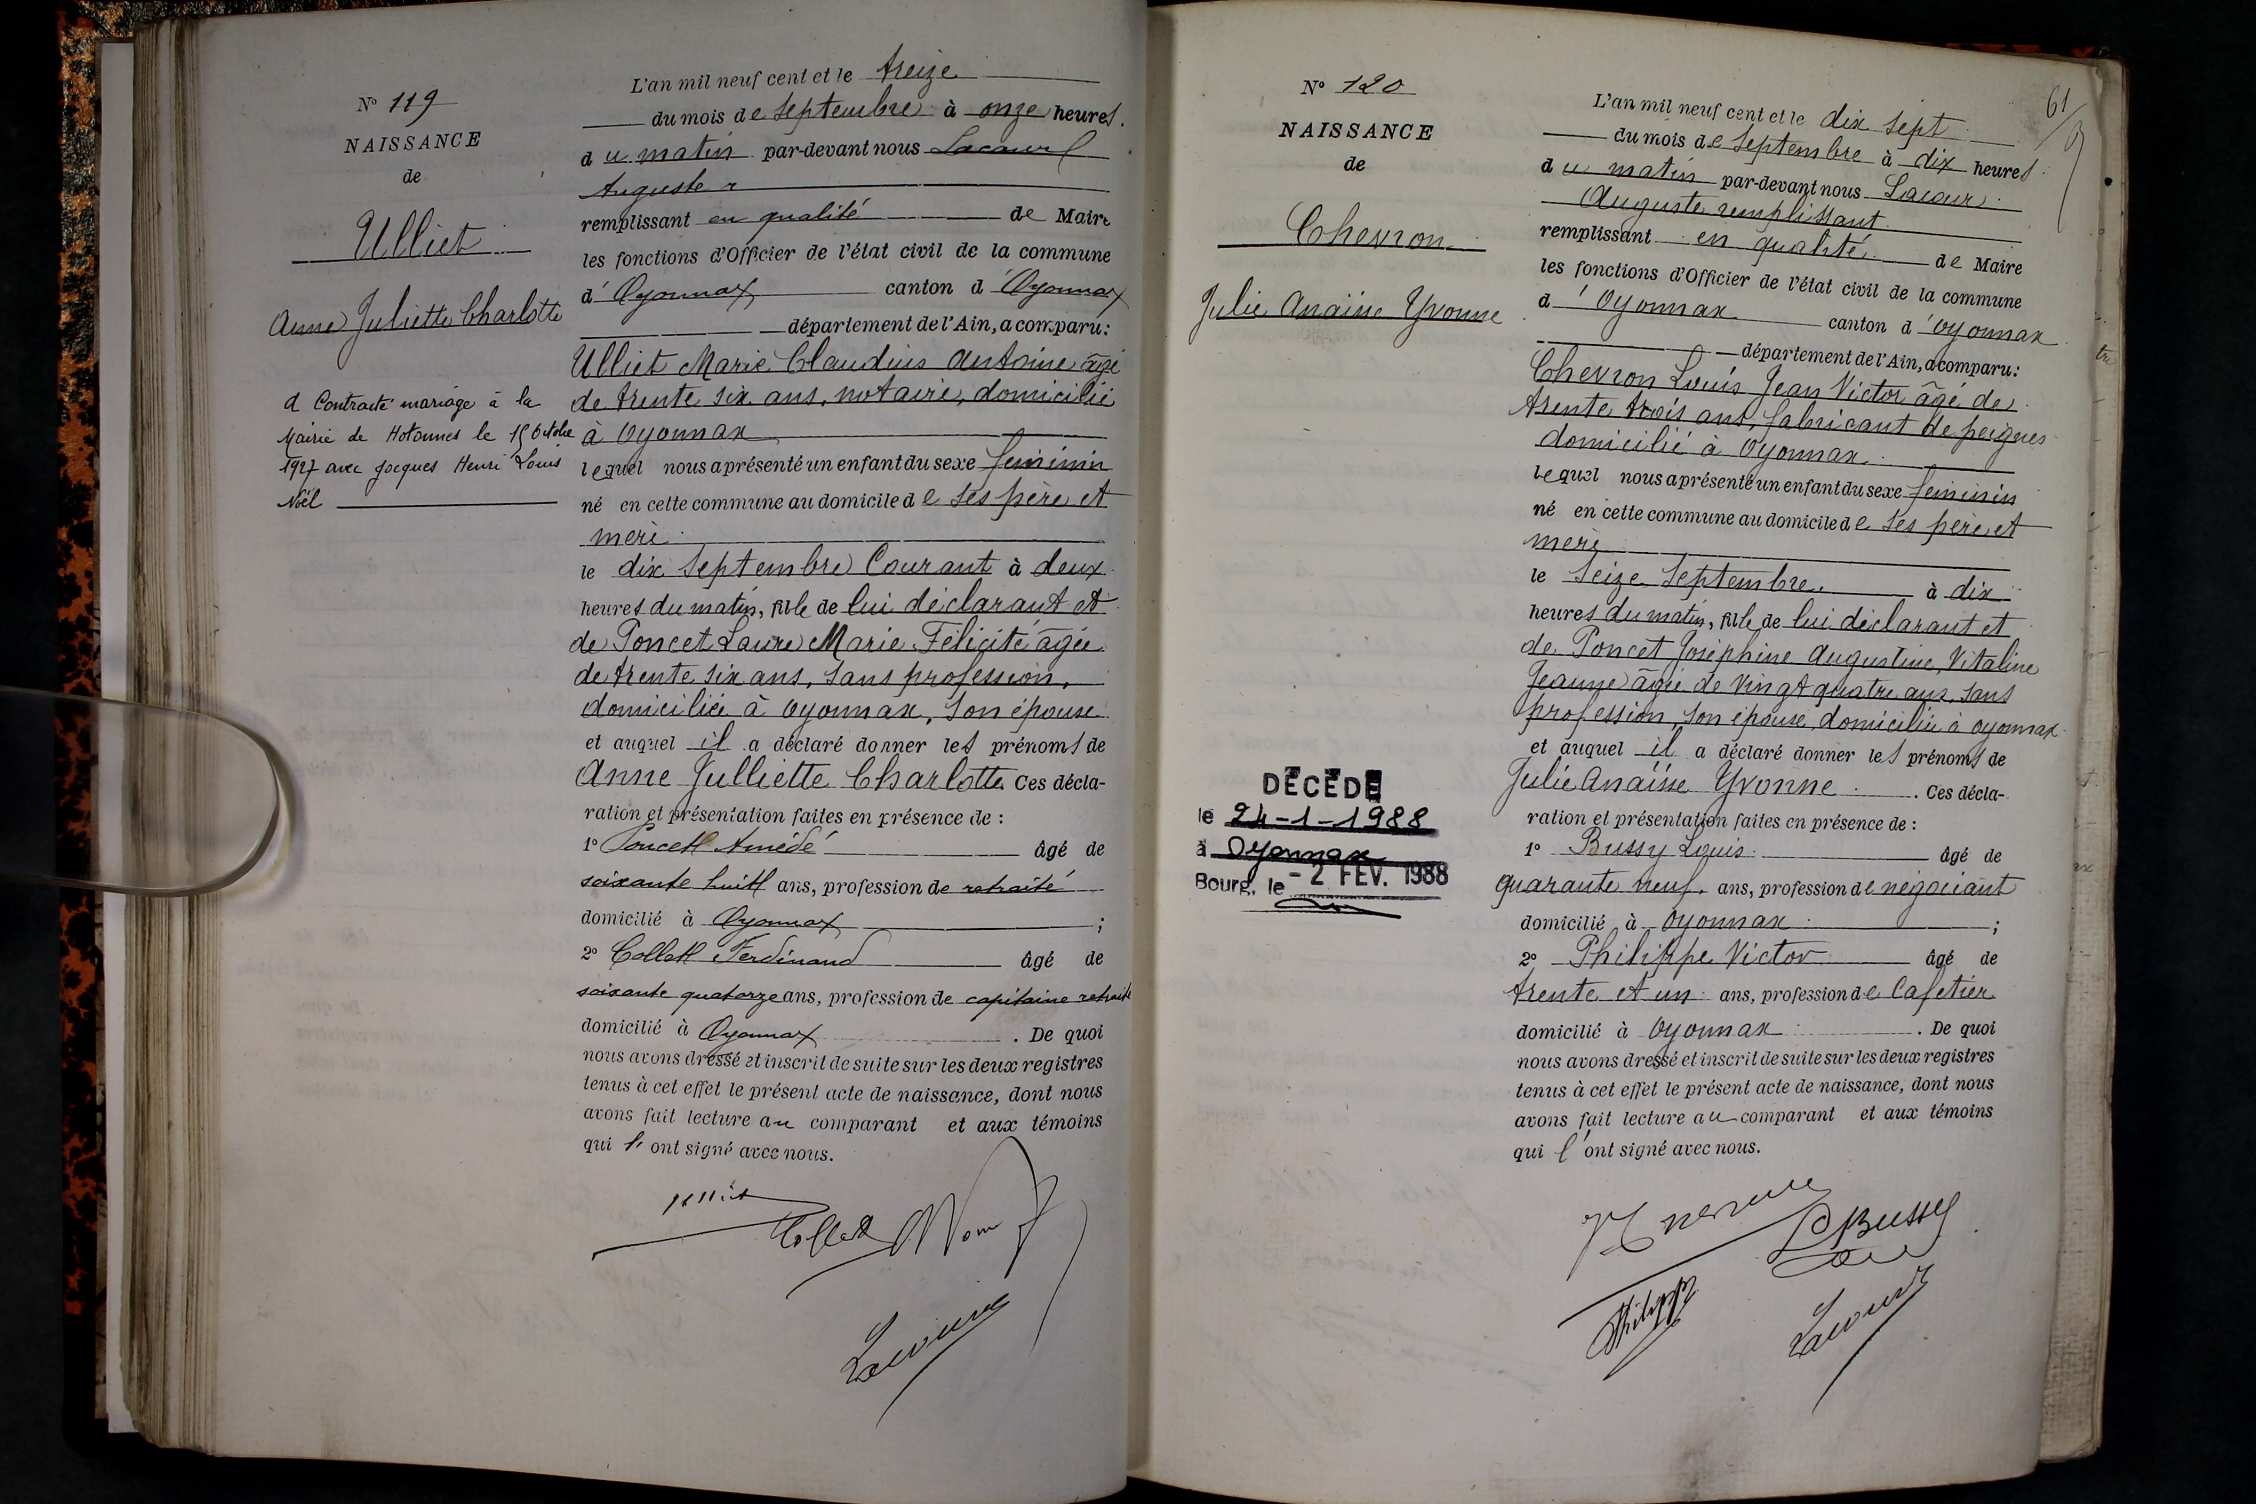 N° 119
NAISSANCE
de
Ulliet
Anne Juliette Charlotte
A Contracté mariage à la
Mairie de Hotonnes le 15 Octobre
1927 avec Jacques Henri Louis
Noël
L'an mil neuf cent et le treize
du mois de septembre à onze heures
du matin par-devant nous Lacour
Auguste
remplissant en qualité de Maire
les fonctions d'Officier de l'état civil de la commune
d'Oyonnax canton d'Oyonnax
département de l'Ain, a comparu:
Ulliet Marie Claudius Antoine âgé
de trente six ans, notaire, domicilié
à Oyonnax
lequel nous a présenté un enfant du sexe feminin
né en cette commune au domicile de ses père et
mère
le dix septembre Courant à deux
heures du matin, fille de lui déclarant et
de Poncet Laure Marie Félicité âgée
de trente six ans, sans profession,
domiciliée à Oyonnax, son épouse
et auquel il a déclaré donner les prénoms de
Anne Julliette Charlotte Ces décla-
ration et présentation faites en présence de :
1° Poncet Amédé âgé de
soixante huit ans, profession de retraité
domicilié à Oyonnax ;
2° Collet Ferdinand âgé de
soixante quatorze ans, profession de capitaine retraité
domicilié à Oyonnax . De quoi
nous avons dressé et inscrit de suite sur les deux registres
tenus à cet effet le présent acte de naissance, dont nous
avons fait lecture au comparant et aux témoins
qui l'ont signé avec nous.
Ulliet
Collet
Lacour
61
N° 120
NAISSANCE
de
Chevron
Julie Anaïse Yvonne
DÉCÉDÉ
le 24-1-1988
à Oyonnax
Bourg, le -2 FEV. 1988
L'an mil neuf cent et le dix sept
du mois de septembre à dix heures
du matin par-devant nous Lacour
Auguste remplissant
remplissant en qualité de Maire
les fonctions d'Officier de l'état civil de la commune
d'Oyonnax canton d'Oyonnax
département de l'Ain, a comparu:
Chevron Louis Jean Victor âgé de
trente trois ans, fabricant de peignes
domicilié à Oyonnax
lequel nous a présenté un enfant du sexe feminin
né en cette commune au domicile de ses père et
mère
le seize septembre à dix
heures du matin, fille de lui déclarant et
de Poncet Joséphine Augustine, Vitaline
Jeanne âgée de vingt quatre ans, sans
profession, son épouse, domiciliée à Oyonnax
et auquel il a déclaré donner les prénoms de
Julie Anaïse Yvonne . Ces décla-
ration et présentation faites en présence de :
1° Bussy Louis âgé de
quarante neuf ans, profession de négociant
domicilié à Oyonnax ;
2° Philippe Victor âgé de
trente et un ans, profession de Cafetier
domicilié à Oyonnax . De quoi
nous avons dressé et inscrit de suite sur les deux registres
tenus à cet effet le présent acte de naissance, dont nous
avons fait lecture au comparant et aux témoins
qui l'ont signé avec nous.
Chevron
L Bussy
Philippe
Lacour